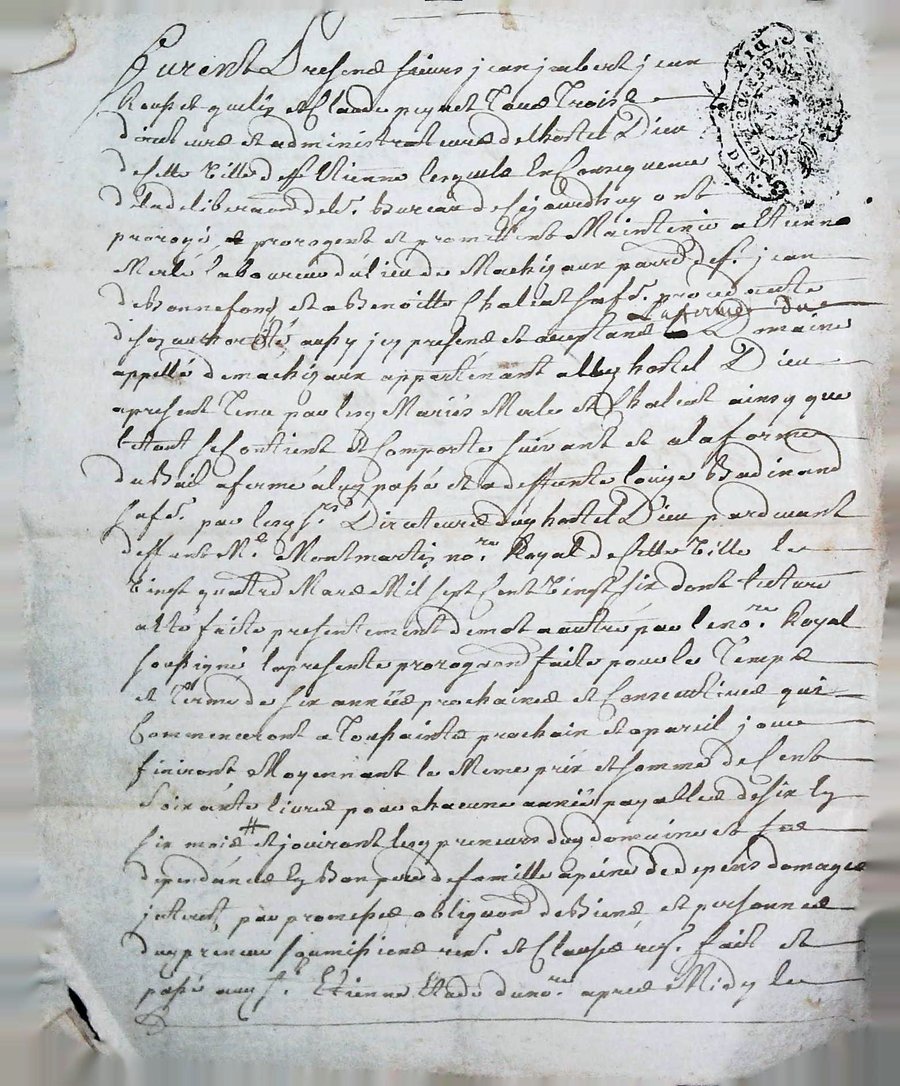 Furent Presens sieurs jean jmbert jean
et Claude peynet Tous Trois
directeurs et administrateurs de lhostel Dieu
de cette Ville de St Etienne lesquels En Consequence
de la deliberaon du Sr. Bureau de cejourdhuy ont
prorogé, et prorogent et promettent Maintenir a Etienne
Merle laboureur du lieu de Machizaux parr. de St. jean
de Bonnefond et a Benoitte Chaleat sa fe. procedante
de son authorité aussy jcy presens et acceptans La ferme du Domaine
appellé de machizaux appartenant audt hostel Dieu
apresent Tenu par lesd Mariés Merle et Chaleat ainsy que
letout se Contient et Comporte suivant et a la forme
du Bail a ferme aluy passé et a deffunte Louise Badinand
sa fe. par lesd srs Directeurs dud hostel Dieu pardevant
deffunt Me. Montmartin nore. Royal de cette Ville le
Vingt quatre Mars Mil sept Cent Vingt six dont lecture
a êté faite presentement de mot a autre par le nore. Royal
soussigné la presente prorogaon faite pour le Temps
et Terme de six années prochaines et Consecutives qui
Commenceront a Toussaints prochain et apareil jour
finiront Moyennant le Meme prix et somme de Cent
Soixante livres pour chacune année payables de six En
six mois # et jouiront lesd preneurs dud domaine et ses
dependances En Bon pere de famille a peine de depens domages
jnterests par promesses obligaon de Biens et personnes
dud preneur soumissions ren. et Clauses res. fait et
passé aud St. Etienne Etude du nore. apres Midy le